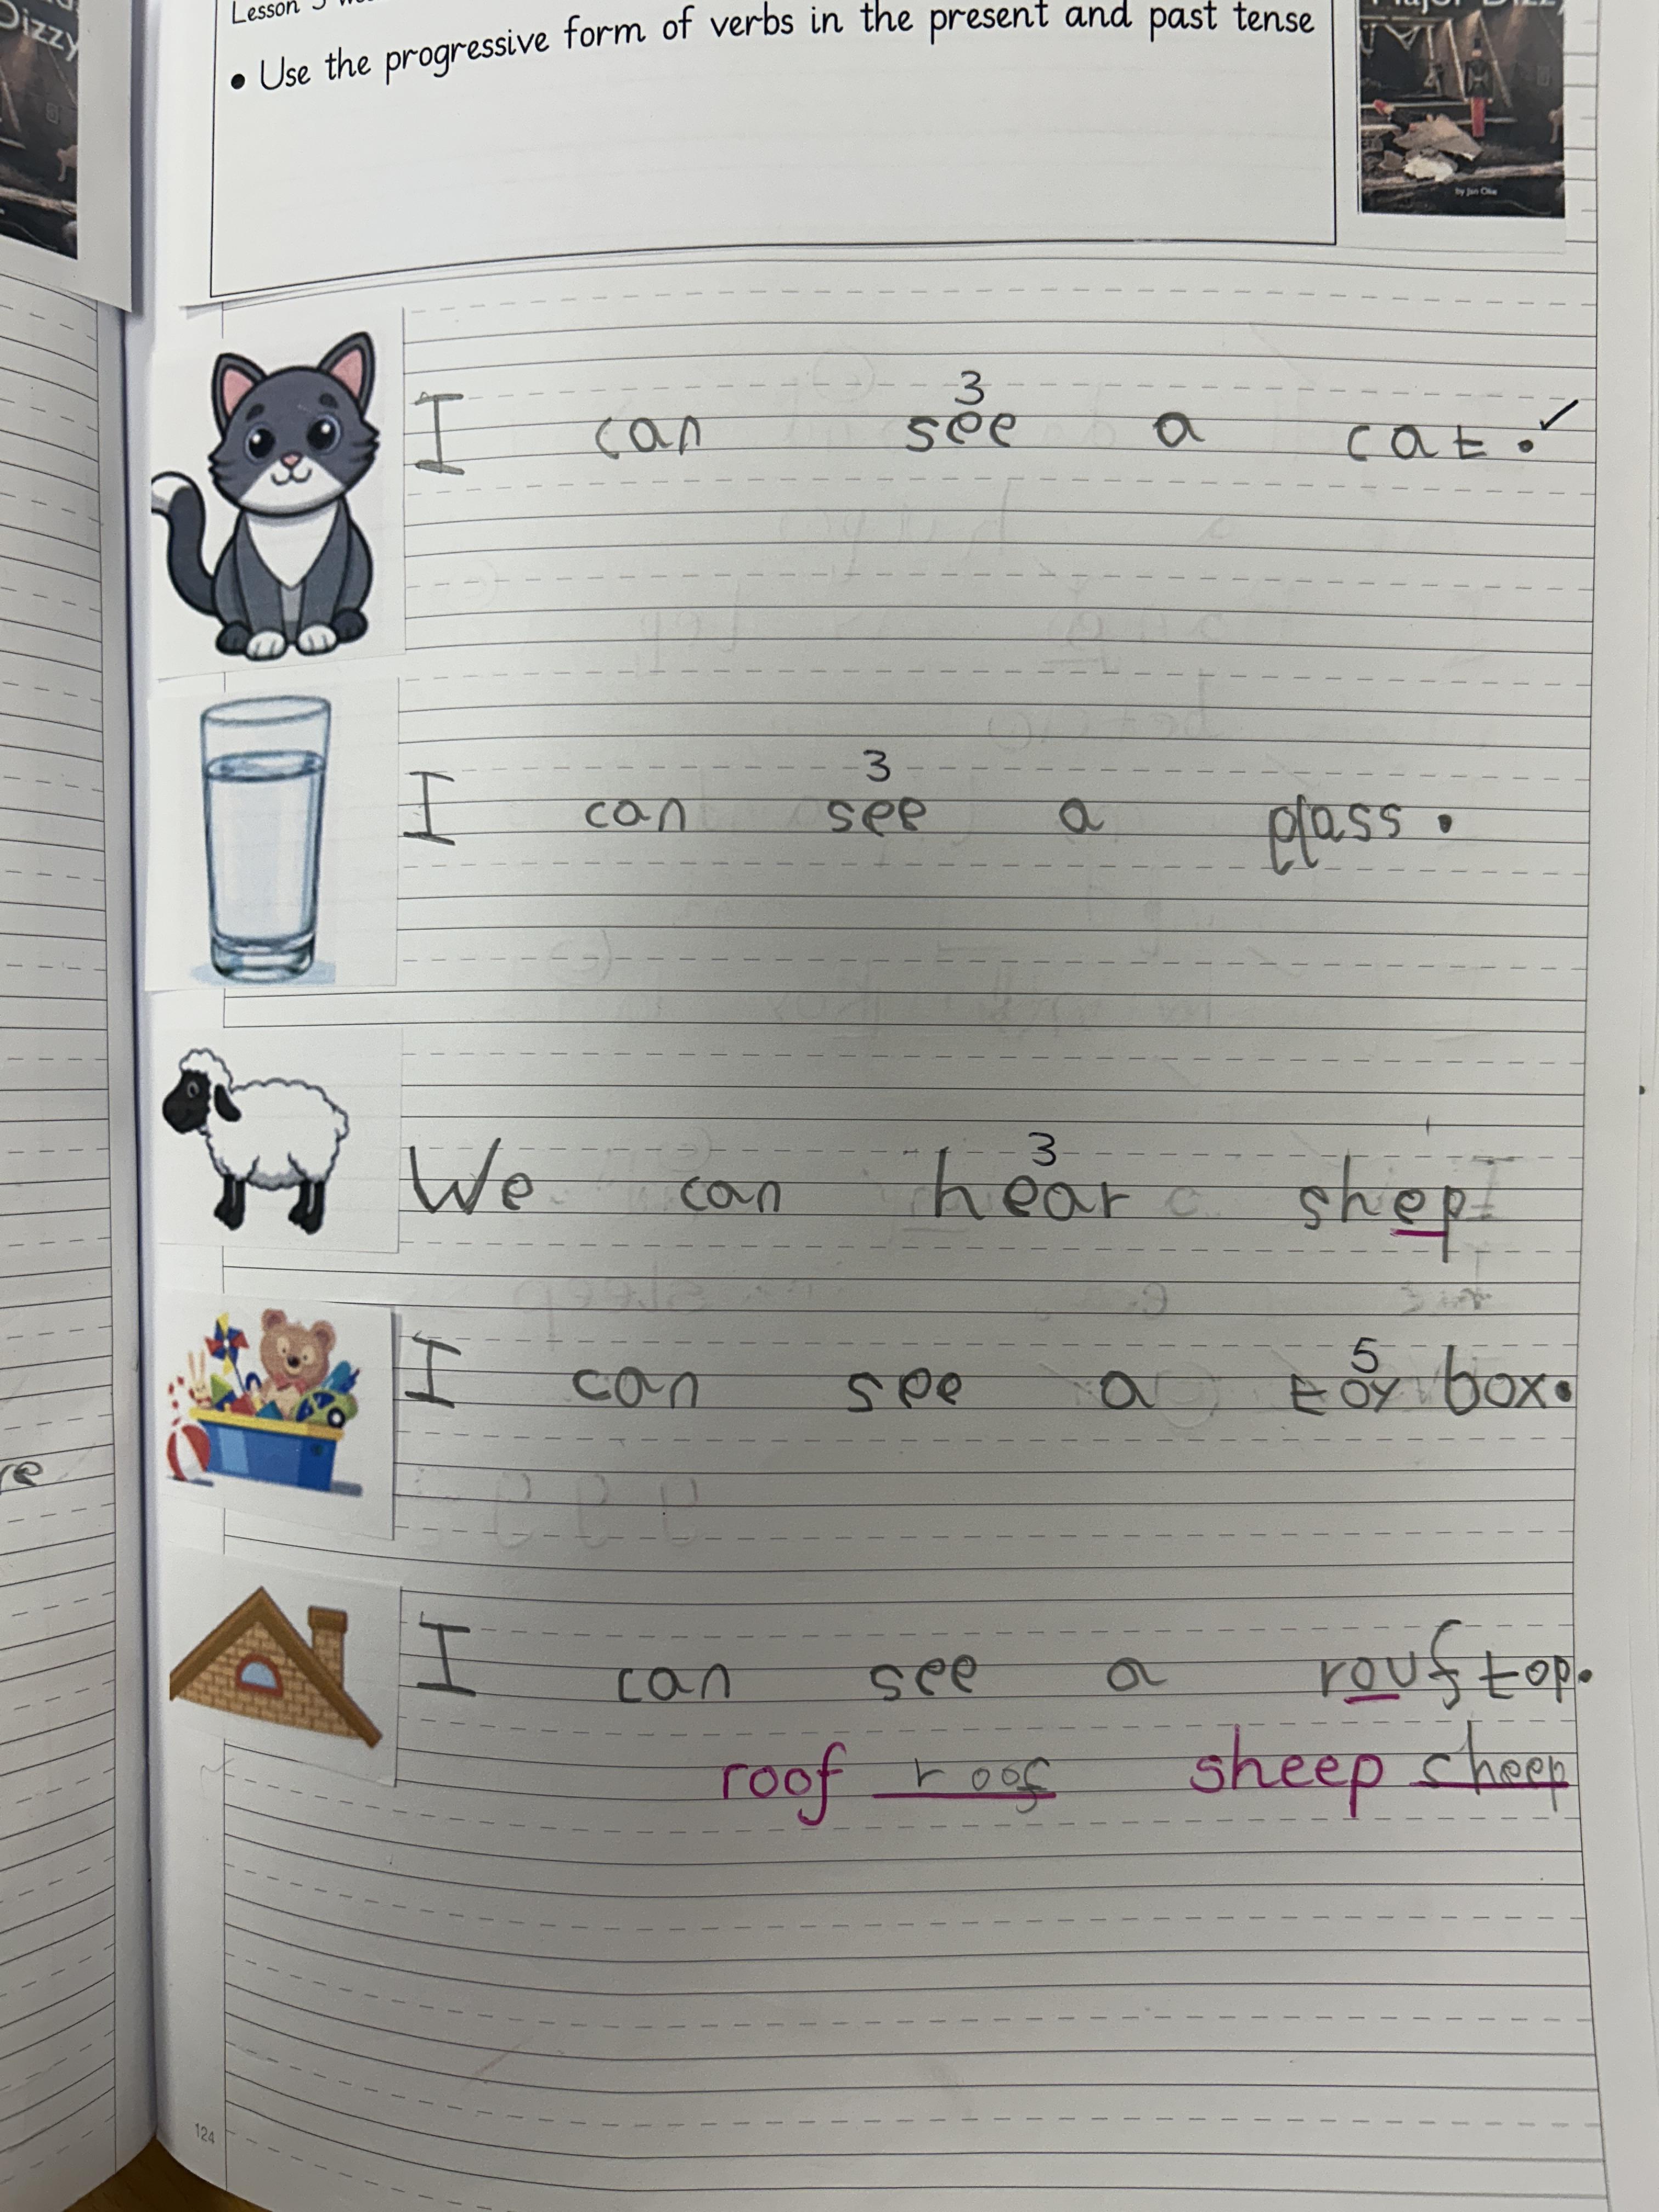 Lesson 3
• Use the progressive form of verbs in the present and past tense
Dizzy
by Jan Oke
3
I can see a cat.
3
I can see a glass.
3
We can hear shep
5
I can see a toy box.
I can see a rouftop.
roof roof sheep sheep
re
124